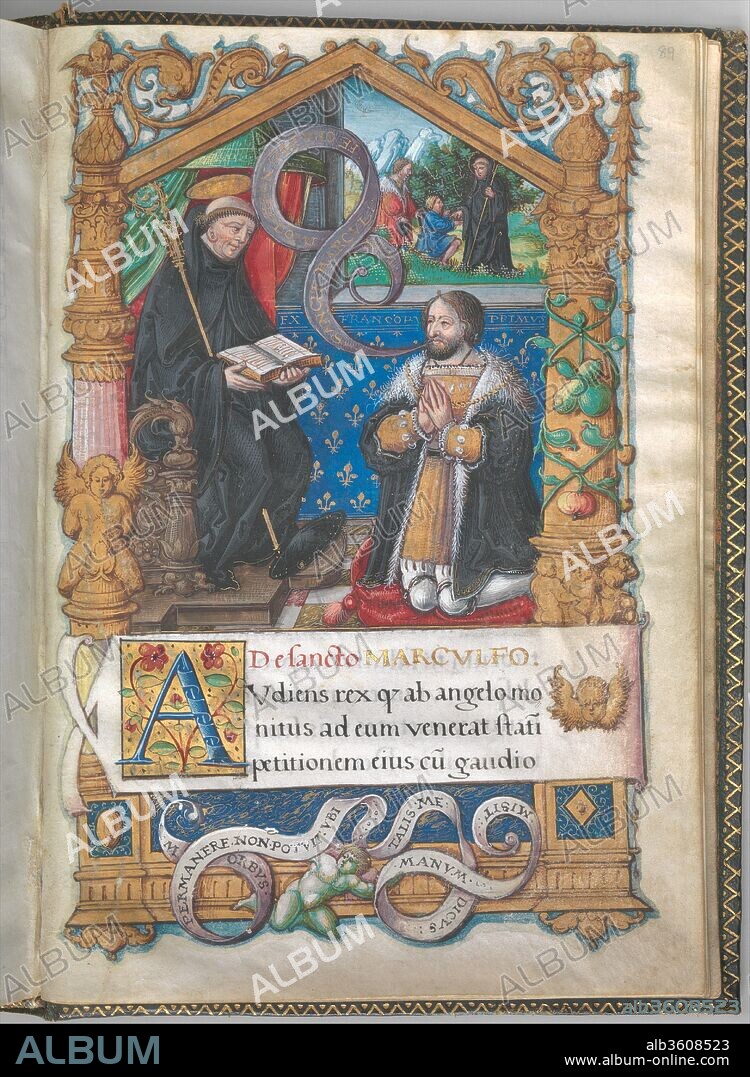 89
EX FRANCORV PRIMVS
De sancto MARCVLFO.
AVdiens rex qƺ ab angelo mo
nitus ad eum venerat statĩ
petitionem eius cũ gaudio
PERMANERE·NON·POTVIT·VBI
MORBVS
TALIS·ME
MANVM·
MISIT·
DICVS:
ALBUM
alb3608523
ALBUM
alb3608523
www.album-online.com